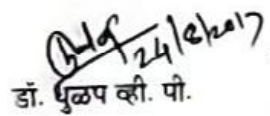 24/8/2017
डॉ. धुळप व्ही. पी.